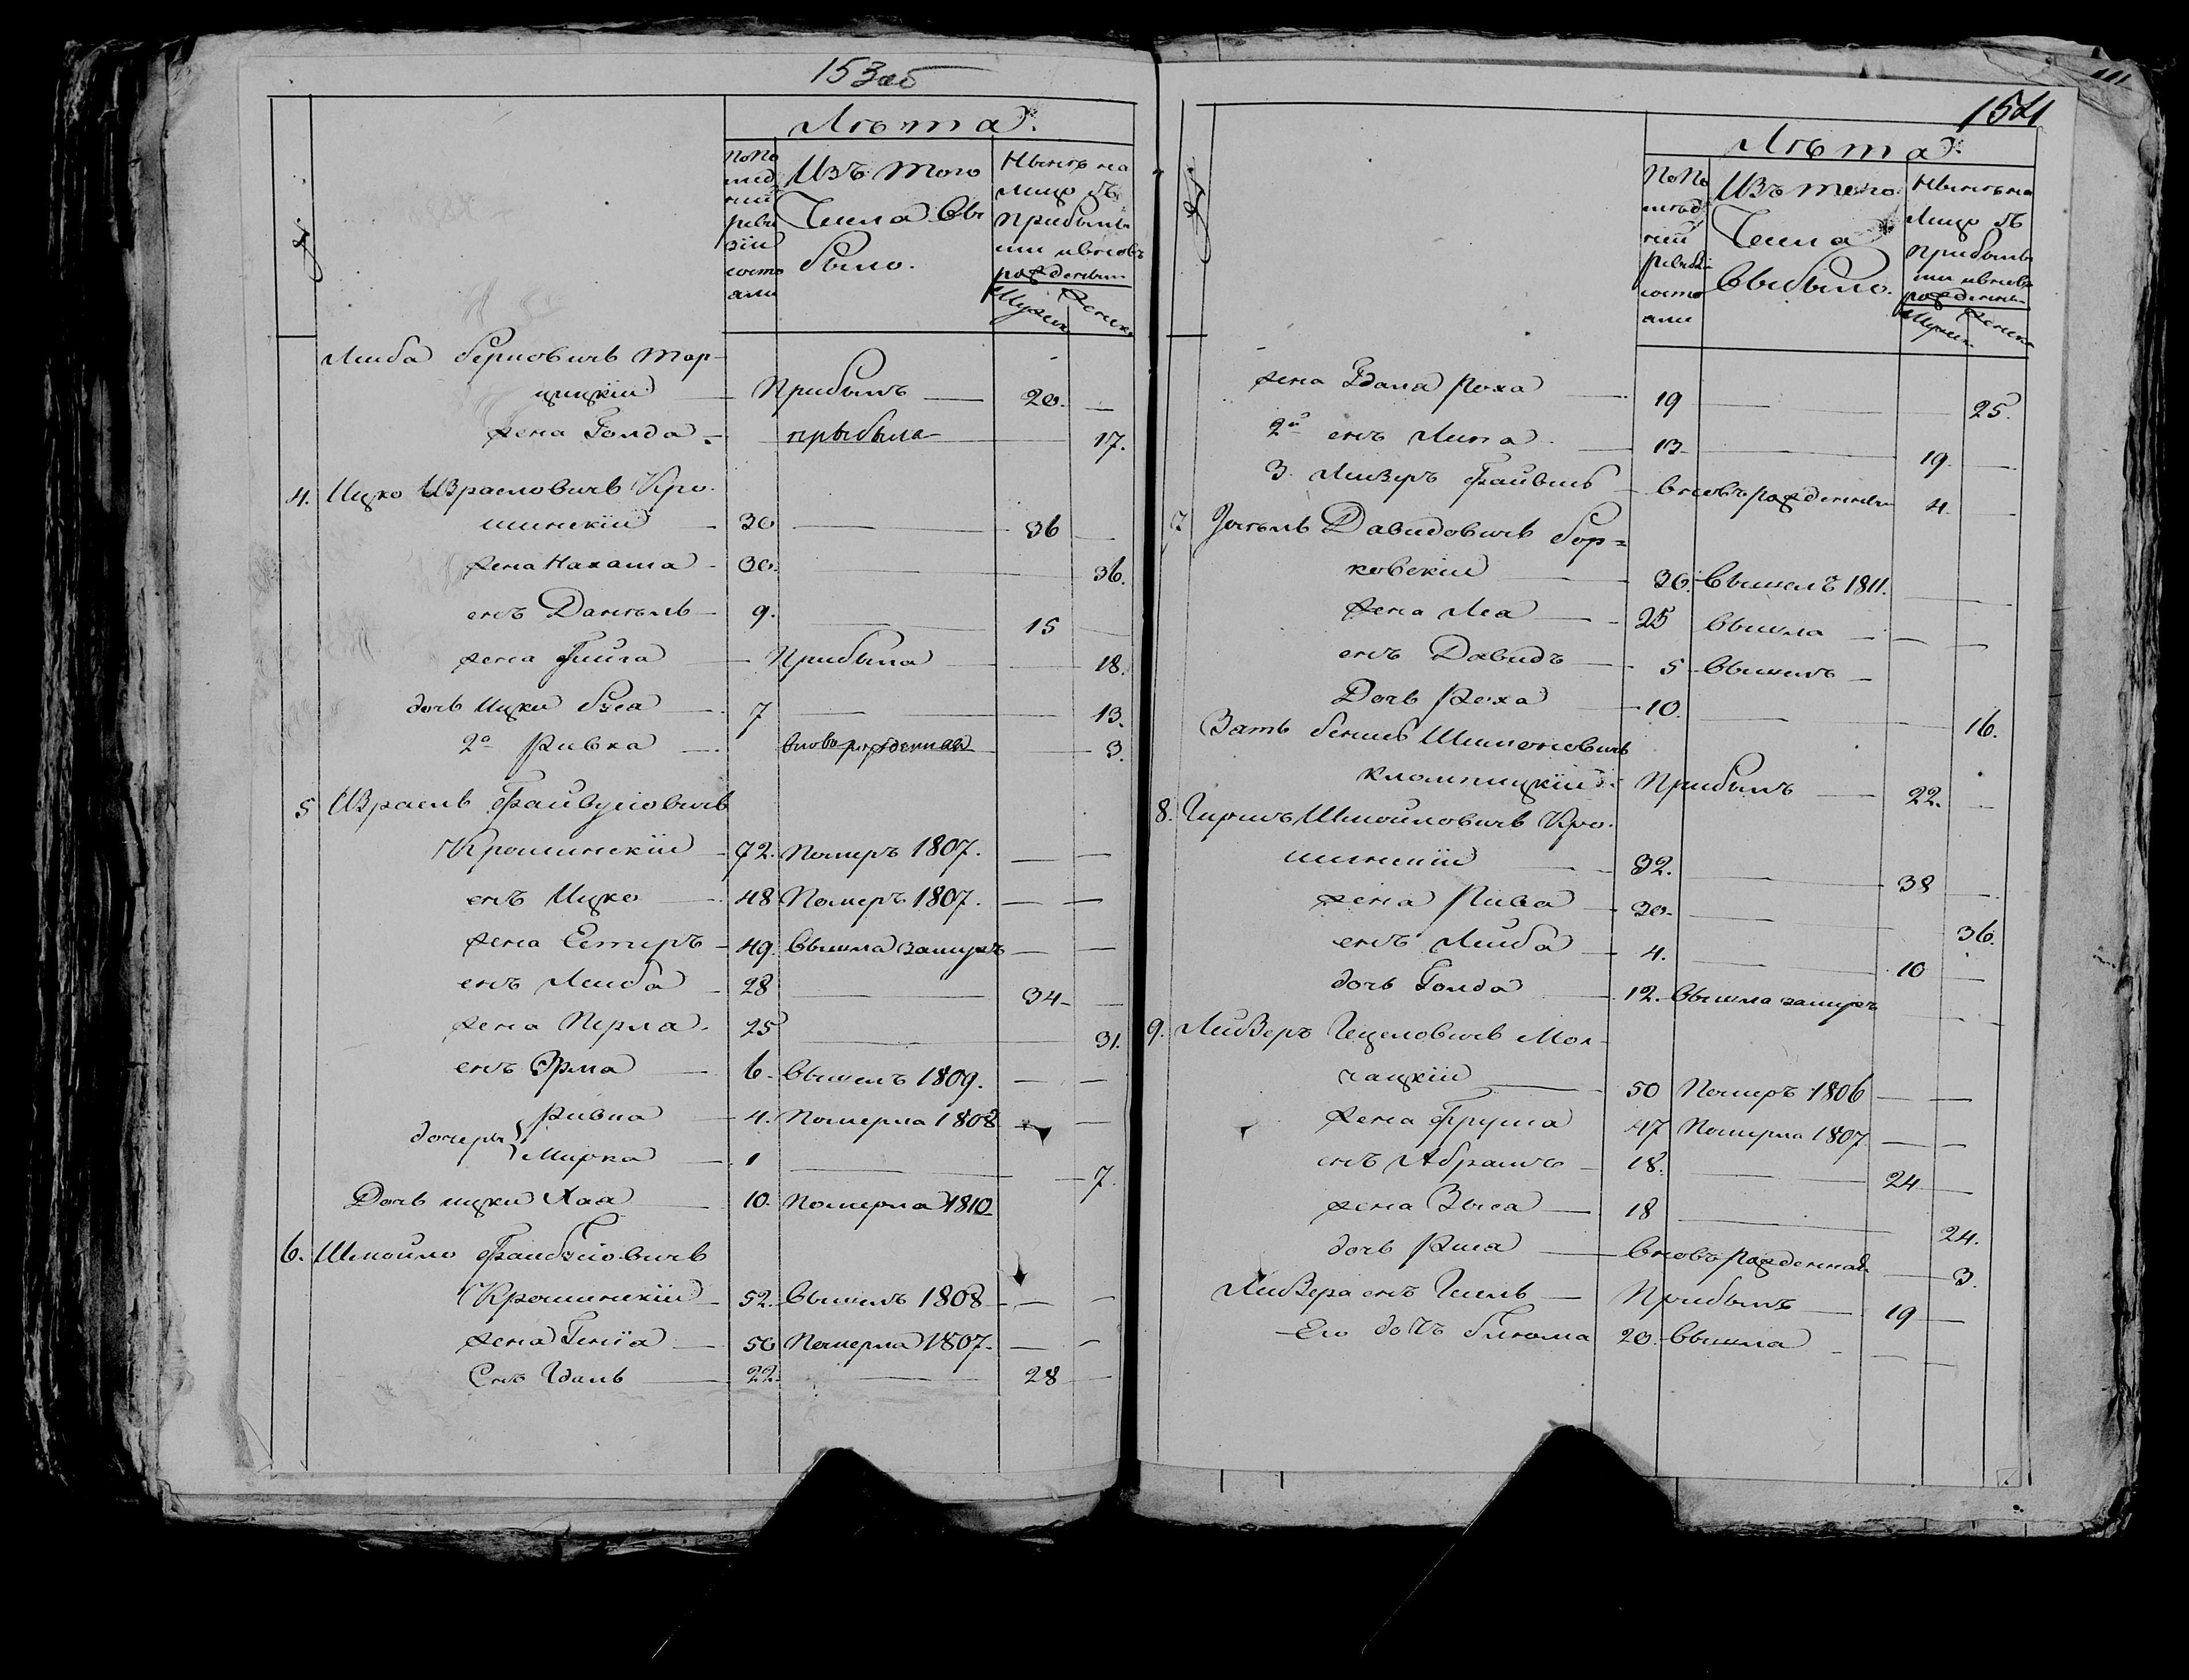 153 об
Лѣта.
По по
слѣд
ней
реви
зіи
состо
яли
Изъ того
Числа вы
было.
Нынѣ на
лицо съ
прибылы
ми и вновь
рожденны
Мужеск
Женска
Лейба Берковичь Тар-
чицкій — Прибылъ — 20. —
жена Голда — прыбыла — 17.
4. Ицко Израеловичь Кро-
шинскій — 30 — 36 —
жена Нахама — 30. — 36.
сынъ Даніель — 9. — 15 —
жена Фейга — Прибыла — 18.
дочь Ицки Буса — 7 — 13.
2я Ривка — вновь рожденная — 3.
5 Израель Файвушовичь
Крошинскій — 72. Померъ 1807. — —
сынъ Ицко — 48 Померъ 1807. — —
жена Естеръ — 49. Вышла замужъ — —
сынъ Лейба — 28 — 34 —
жена Перла. 25 — 31.
сынъ Эрма — 6. Вышелъ 1809. — —
дочери Ривка — 4. Померла 1808 — —
Мирка — 1 — 7.
Дочь ицки Хая — 10. Померла 1810
6. Шмойло Файбушовичь
Крошинскій — 52. Вышелъ 1808 — —
жена Генія — 50 Померла 1807. — —
Сынъ Идель — 22 — 28 —
154
Лѣта.
По по
слѣд
ней
ревизі
состо
яли
Изъ того
Числа
Выбыло.
Нынѣ на
лицо съ
прибылы
ми и вновь
рожденны
Мужеск
Женска
жена Роха — 19 — 25.
2й сынъ Липа. — 13 — 19. —
3. Лейзеръ Файвель — Вновь рожденны 4. —
7 Давидовичь Бор=
ковскій — 30. Вышелъ 1811. —
жена Леа — 25 Вышла — — —
сынъ Давидъ — 5 Вышелъ —
Дочь Роха — 10. — 16.
Зять Шимоновичь
Прибылъ — 22. —
8. Гиршъ Шмойловичь Кро-
шинскій — 32. — 38 —
жена Рива — 30. — 36.
сынъ Лейба — 4. — 10 —
дочь Голда — 12. Вышла замужъ
9. Лейзеръ Гецеловичь Мол-
чацкій — 50 Померъ 1806 — —
жена Фрума 47 Померла 1807. — —
сынъ Абрамъ — 18. — 24 —
жена Зыса — 18 — 24.
дочь — Вновь рожденная — 3.
Лейзера сынъ — Прибылъ — 19 —
Его дочь Блюма 20. Вышла — — —